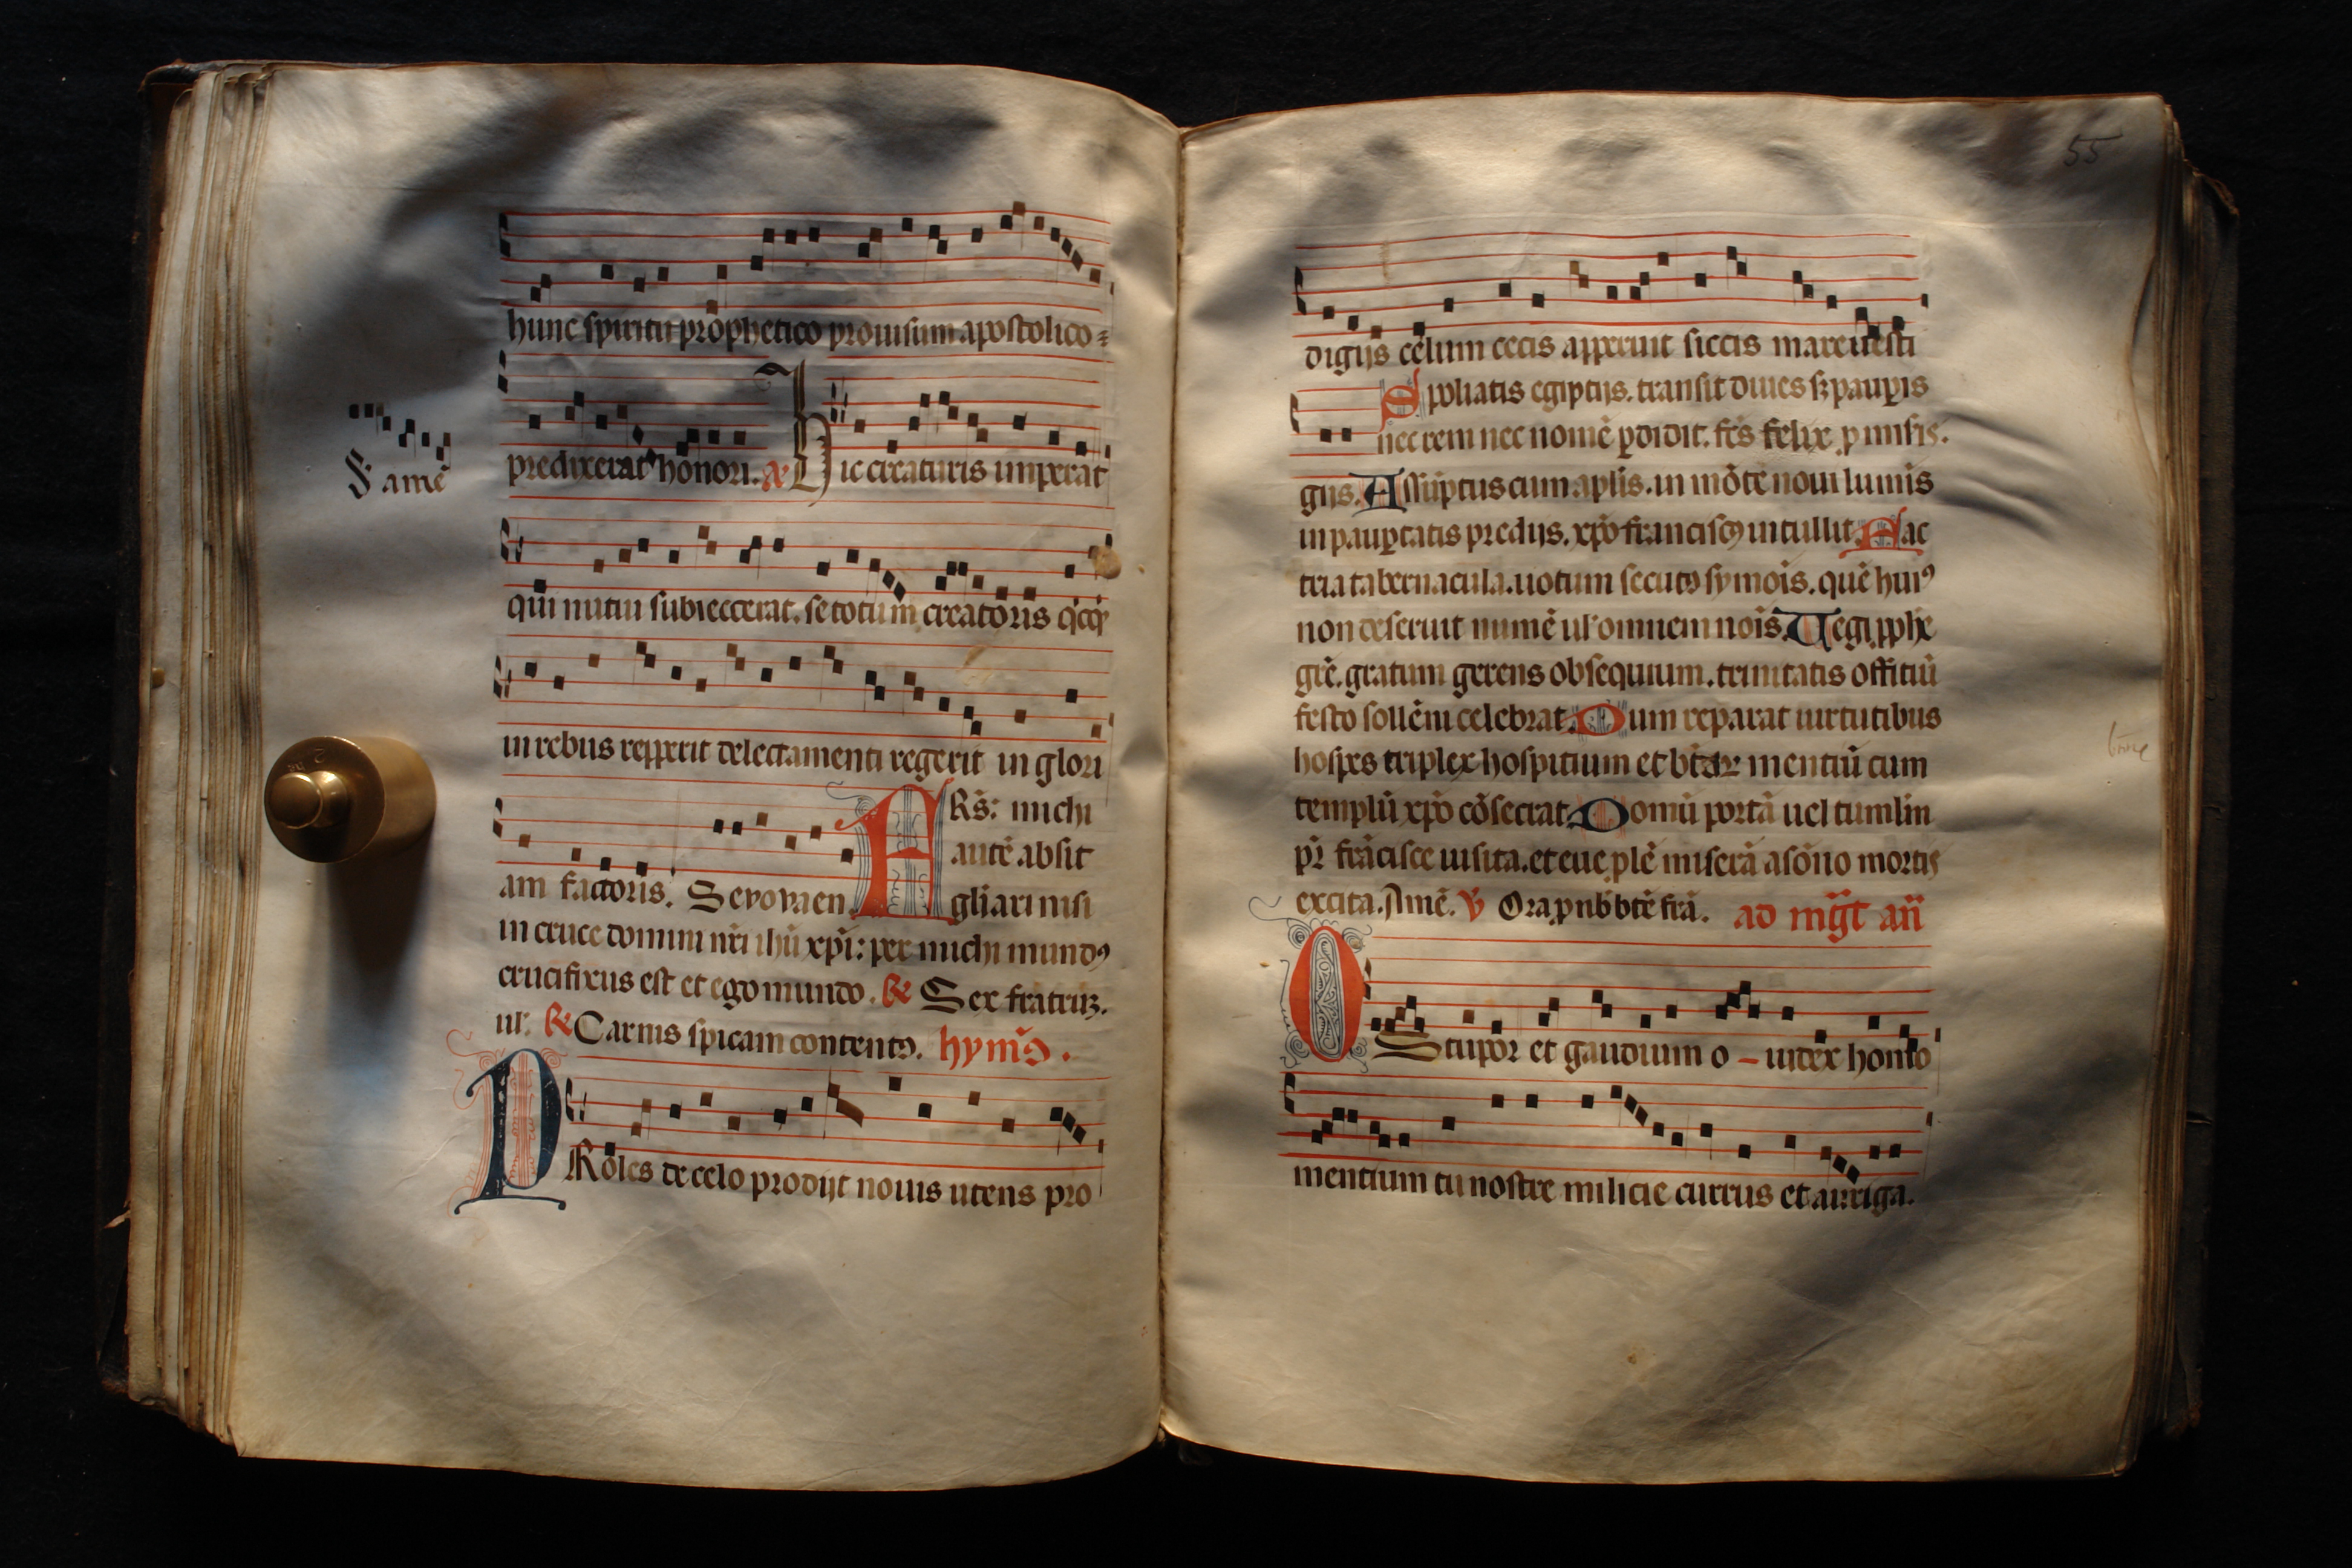 hunc spiritu prophetico prouisum apostolico
predixerat honori. a Hic creaturis imperat
F amē
qui nutui subiecerat. se totum creatoris qͥcqͥ
in rebus repperit delectamenti regerit in glori
am factoris. Seuouaen
A Rs: michi
autē absit
gl̄iari nisi
in cruce domini nr̄i ihū xp̄i: per michi mundꝯ
crucifixus est et ego mundo. R Sex fratruꝫ.
ul' R Carnis spicam contentꝯ. hymꝯ.
PRoles de celo prodijt nouis utens pro
55
digijs celum cecis apperuit siccis mare uesti
Spoliatis egiptijs. transit diues sꝫ paupis
nec rem nec nomē ꝑdidit. fc̄s felix p
gijs. Assūptus cum aplis. in mōte noui lumīs
in pauꝑtatis predijs. xp̄o franciscꝯ intullit Fac
tria tabernacula. uotum secutꝯ symōis. quē huiꝰ
non deseruit numē ul' omnem nōis Regi pphē
grē. gratum gerens obsequium. trinitatis offitiū
festo sollēni celebrat. Dum reparat uirtutibus
hospes triplex hospitium et btār mentiū cum
templū xp̄o cōsecrat. Domū portā uel tumlīn
pr̄ frācisce uisita. et eue plē miserā a sōno mortis
excita. Amē. V Ora p nb̄ btē frā. ad mg̅t an̄
O
Stupor et gaudium o iudex homo
mentium tu nostre milicie currus et auriga.